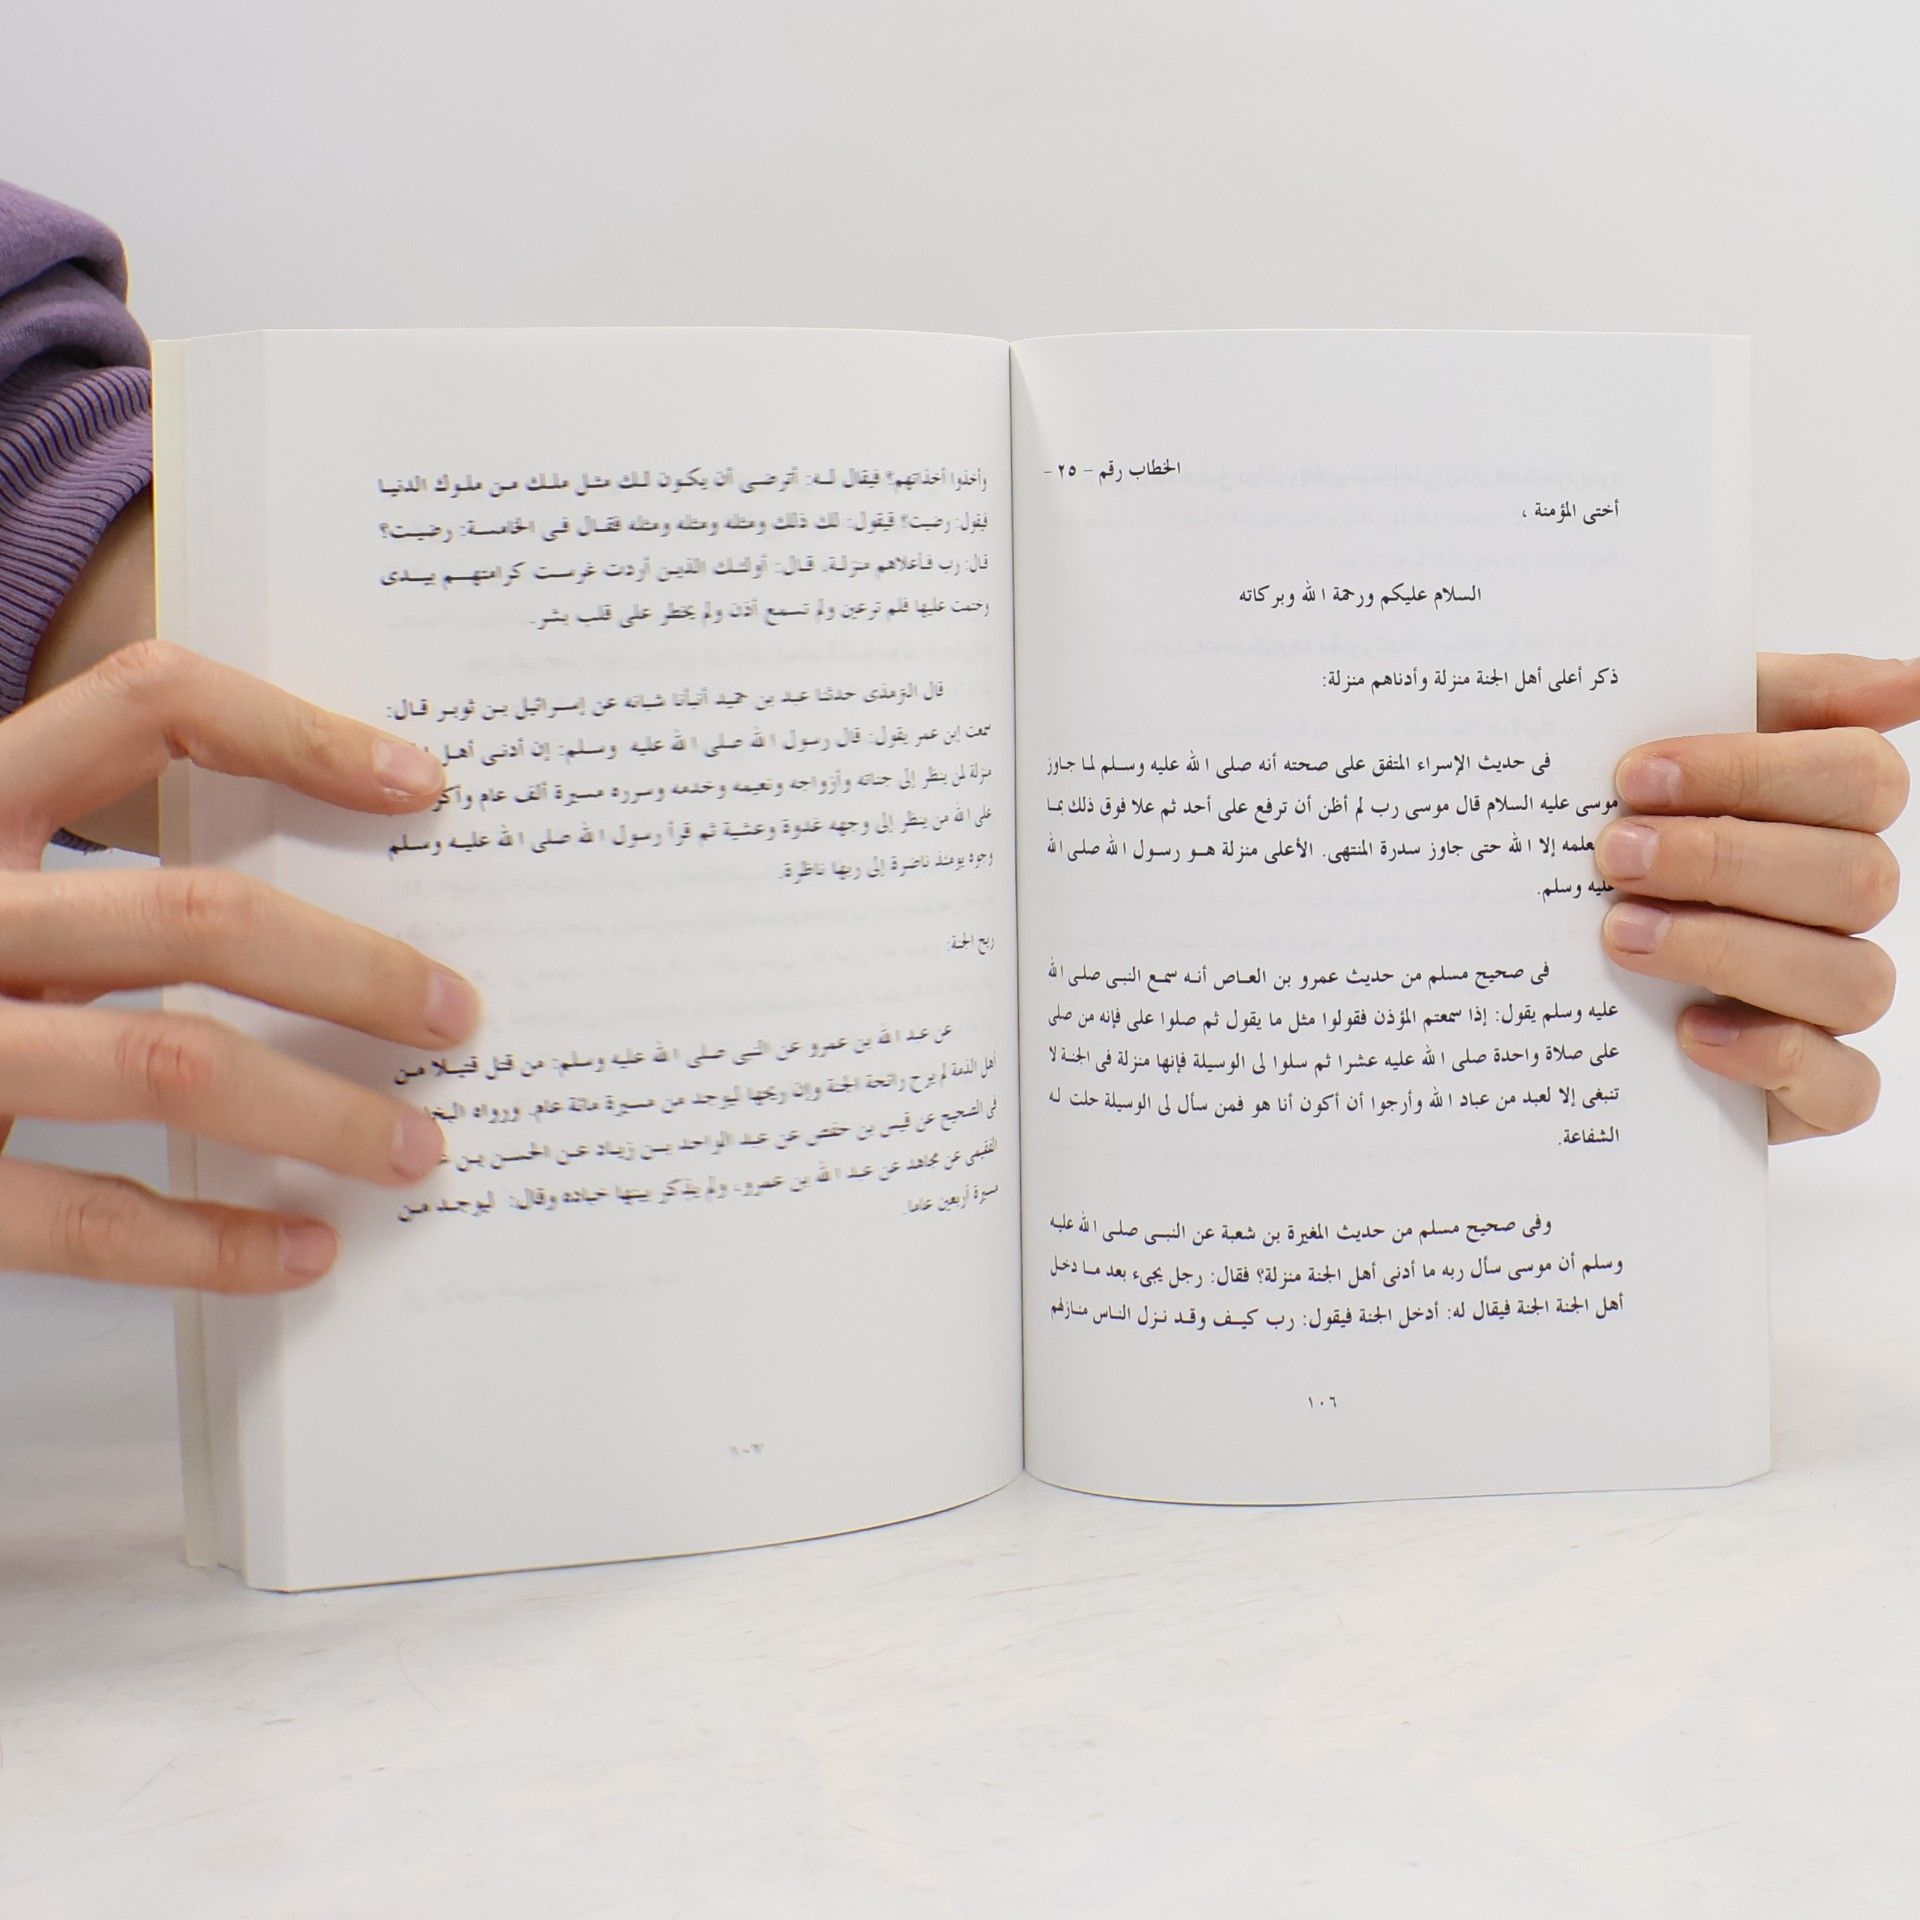 الخطاب رقم - ٢٥ -
أختى المؤمنة ،
السلام عليكم ورحمة الله وبركاته
ذكر أعلى أهل الجنة منزلة وأدناهم منزلة:
فى حديث الإسراء المتفق على صحته أنه صلى الله عليه وسلم لما جاوز
موسى عليه السلام قال موسى رب لم أظن أن ترفع على أحد ثم علا فوق ذلك بما
إلا الله حتى جاوز سدرة المنتهى. الأعلى منزلة هو رسول الله صلى الله
عليه وسلم.
فى صحيح مسلم من حديث عمرو بن العاص أنه سمع النبى صلى الله
عليه وسلم يقول: إذا سمعتم المؤذن فقولوا مثل ما يقول ثم صلوا على فإنه من صلى
على صلاة واحدة صلى الله عليه عشرا ثم سلوا لى الوسيلة فإنها منزلة فى الجنة لا
تنبغى إلا لعبد من عباد الله وأرجوا أن أكون أنا هو فمن سأل لى الوسيلة حلت له
الشفاعة.
وفى صحيح مسلم من حديث المغيرة بن شعبة عن النبى صلى الله عليه
وسلم أن موسى سأل ربه ما أدنى أهل الجنة منزلة؟ فقال: رجل يجىء بعد ما دخل
أهل الجنة الجنة فيقال له: أدخل الجنة فيقول: رب كيف وقد نزل الناس منازلهم
١٠٦
وأخذوا أخذاتهم؟ فيقال له: أترضى أن يكون لك مثل ملك من ملوك الدنيا
فيقول: رضيت؟ فيقول: لك ذلك ومثله ومثله ومثله فقال فى الخامسة: رضيت؟
قال: رب فأعلاهم منزلة، قال: أولئك الذين أردت غرست كرامتهم بيدى
وختمت عليها فلم ترعين ولم تسمع أذن ولم يخطر على قلب بشر.
قال الترمذى حدثنا عبد بن حميد أنبأنا شبابه عن إسرائيل بن ثوير قال:
سمعت إبن عمر يقول: قال رسول الله صلى الله عليه وسلم: إن أدنى أهل
منزلة لمن ينظر إلى جناته وأزواجه ونعيمه وخدمه وسرره مسيرة ألف عام
على الله من ينظر إلى وجهه غدوة وعشية ثم قرأ رسول الله صلى الله عليه وسلم
وجوه يومئذ ناضرة إلى ربها ناظرة.
ريح الجنة:
عن عبد الله بن عمرو عن النبى صلى الله عليه وسلم: من قتل قتيلا من
أهل الذمة لم يرح رائحة الجنة وإن ريحها ليوجد من مسيرة مائة عام. ورواه
فى الصحيح عن قيس بن حفص عن عبد الواحد بن زياد عن الحسن بن
الفقيمى عن مجاهد عن عبد الله بن عمرو، ولم يذكر بينها وقال: ليوجد من
مسيرة أربعين عاما.